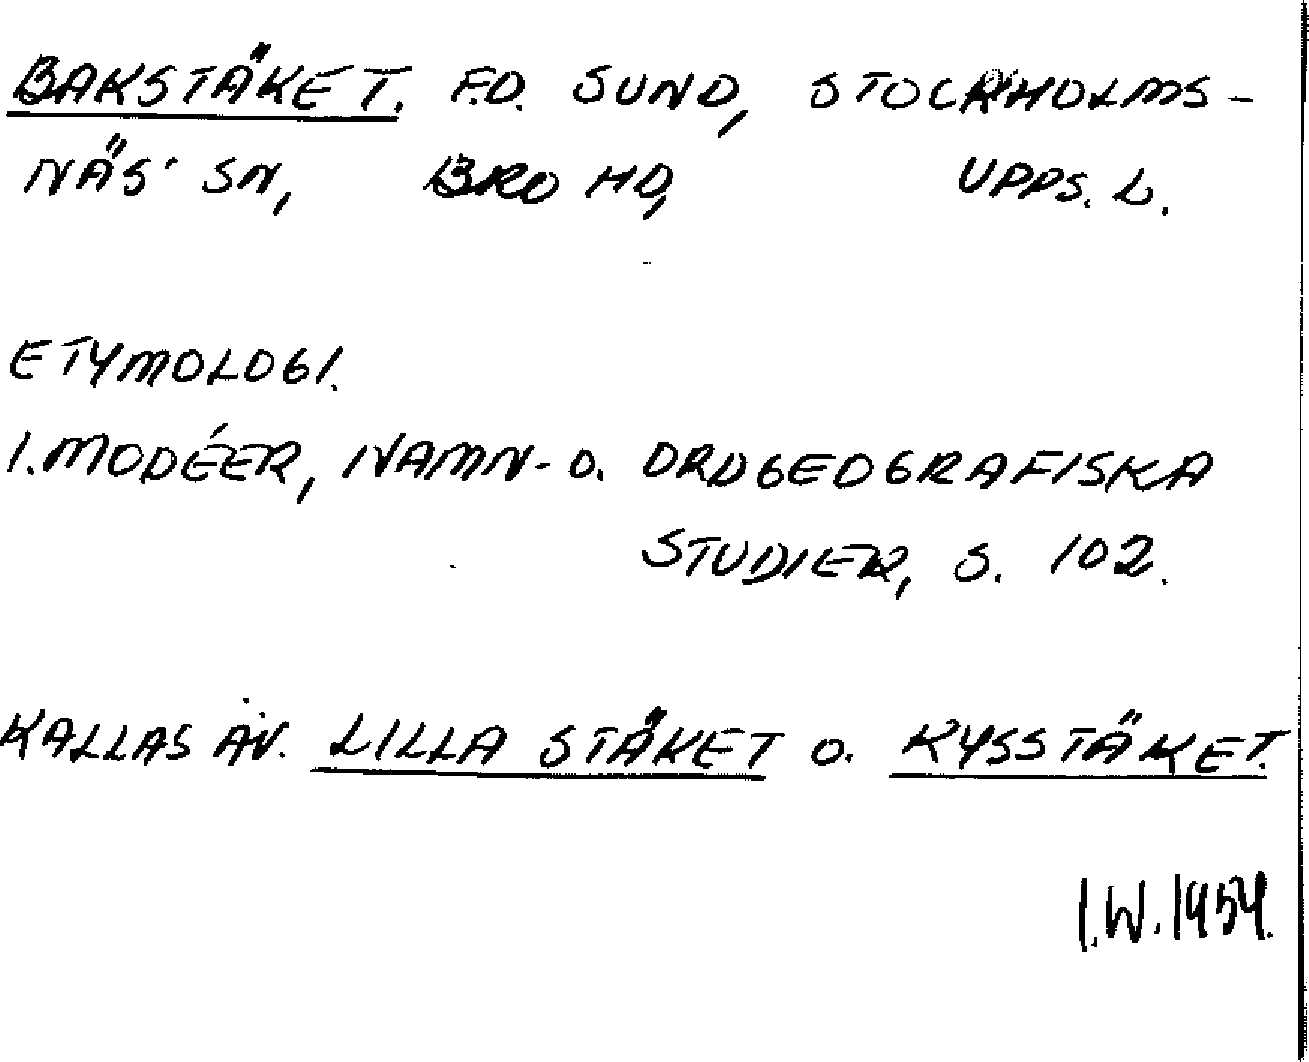 BAKSTÄKET. F.D. SUND, STOCKHOLMS-
NÄS SN, BRO HD, UPPS. L.
ETYMOLOGI.
I. MODÉER, NAMN- O. ORDGEOGRAFISKA
STUDIER, S. 102.
KALLAS ÄV. LILLA STÄKET O. RYSSTÄKET.
I.W. 1954.